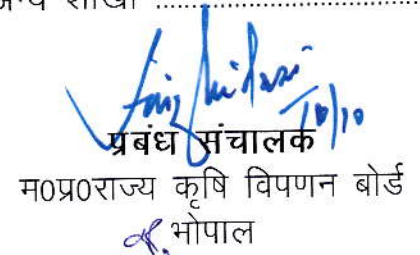 शाखा ........................................
10/10
प्रबंध संचालक
म0प्र0राज्य कृषि विपणन बोर्ड
भोपाल